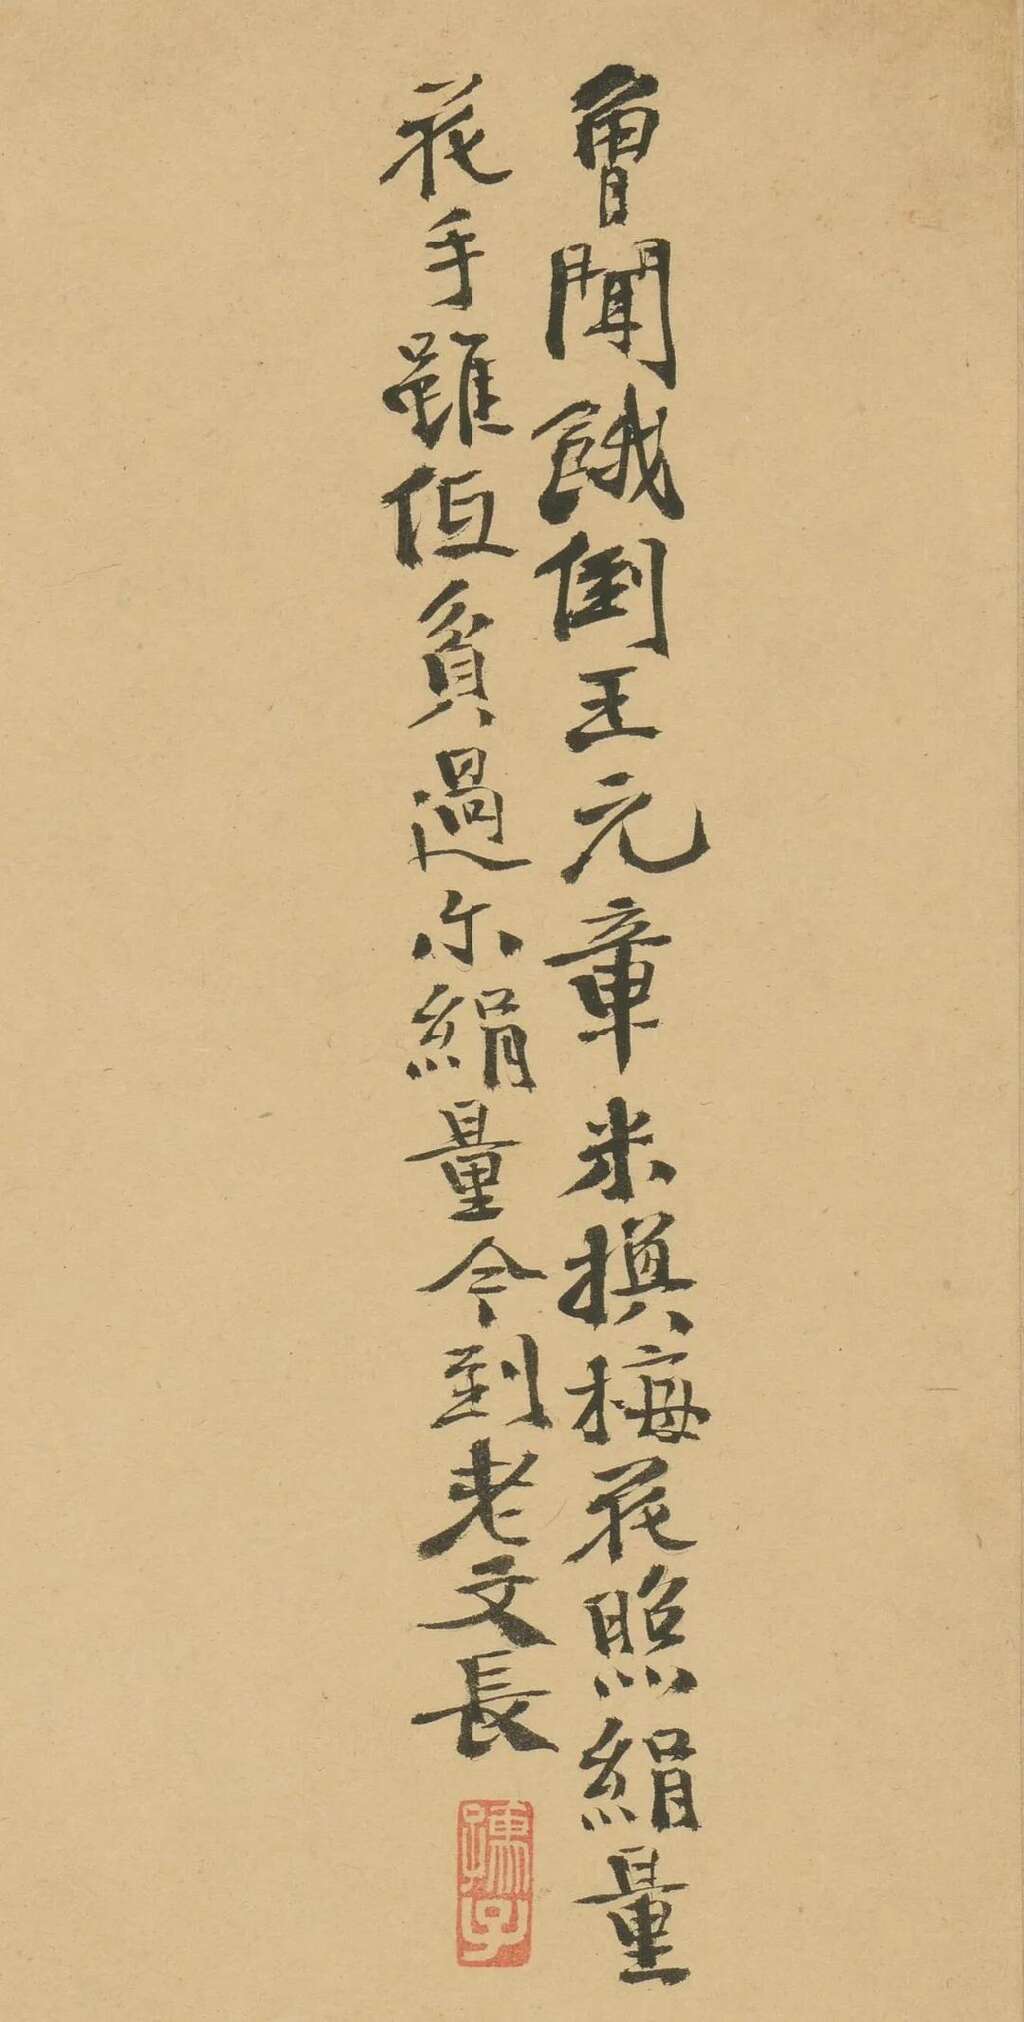 曾聞餓倒王元章米換梅花照絹量
花手雖低貧過尔絹量今到老文長